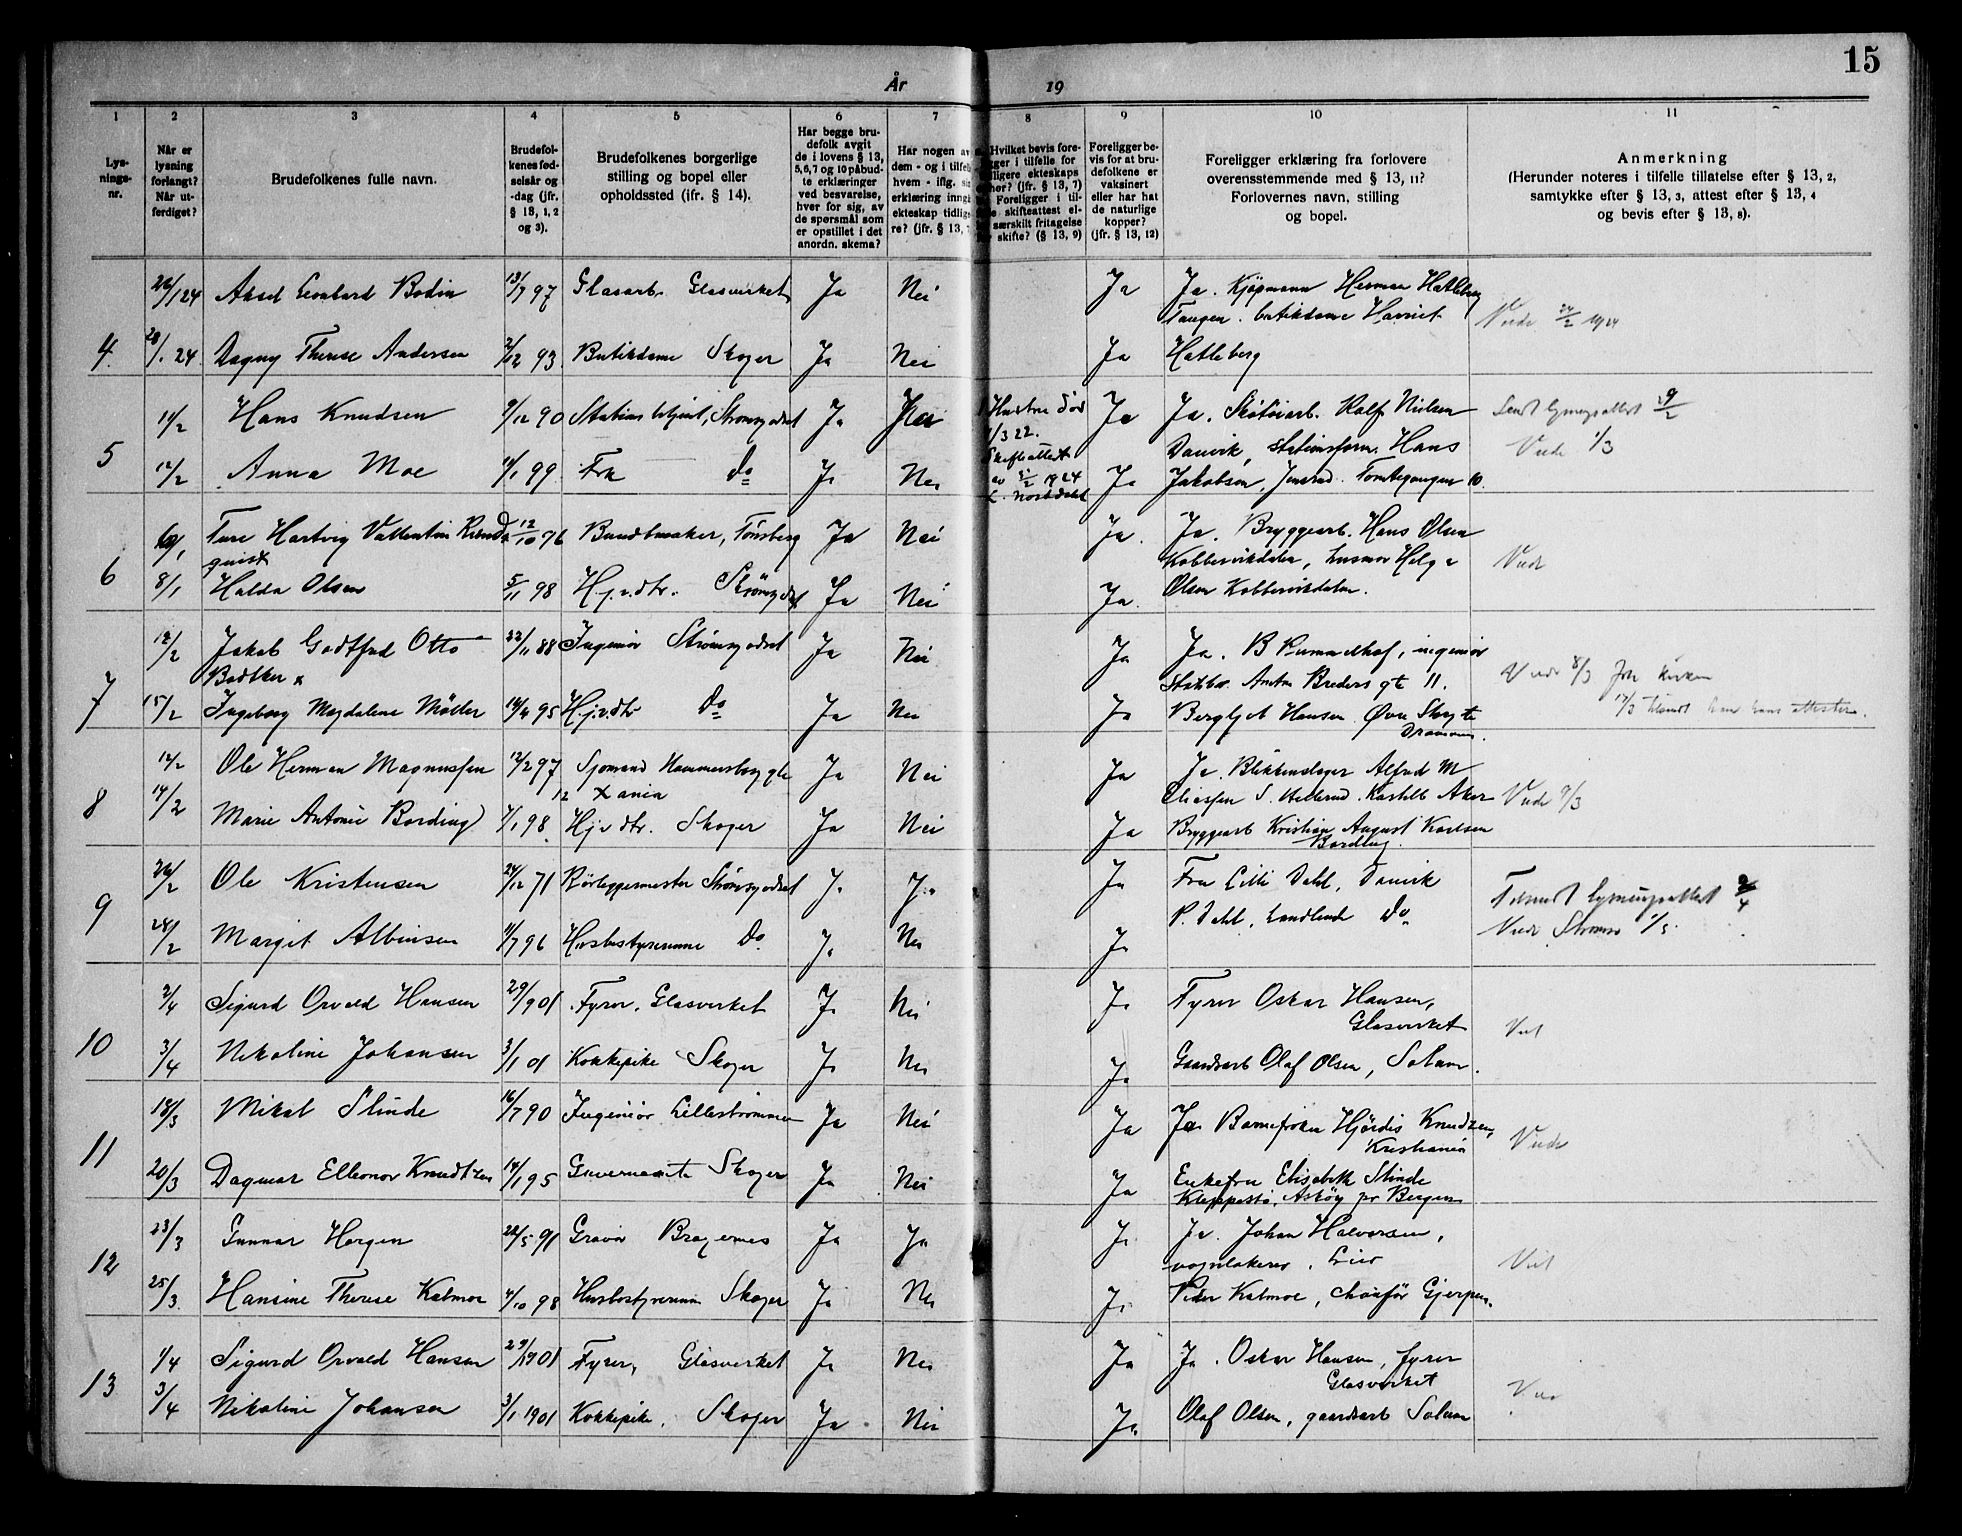 15
År 19
1 2 3 4 5 6 7 8 9 10 11
Lys-
nings-
nr.
Når er
lysning
forlangt?
Når ut-
ferdiget?
Brudefolkenes fulle navn.
Brudefol-
kenes fød-
selsår og
-dag (jfr.
§ 13, 1, 2
og 3).
Brudefolkenes borgerlige
stilling og bopel eller
opholdssted (jfr. § 14).
Har begge bru-
defolk avgit
de i lovens § 13,
5, 6, 7 og 10 påbud-
te erklæringer
ved besvarelse,
hver for sig, av
de spørsmål som
er opstillet i det
anordn. skema?
Har nogen av
dem - og i tilfelle
hvem - iflg.
erklæring inngå
ekteskap tidlige
re? (jfr. § 13,
Hvilket bevis fore-
ligger i tilfelle for
tidligere ekteskaps
ophør? (jfr. § 13, 7)
Foreligger i til-
felle skifteattest el-
særskilt fritagelse
skifte? (§ 13, 9)
Foreligger be-
vis for at bru-
defolkene er
vaksinert
eller har hat
de naturlige
kopper?
(jfr. § 13, 12)
Foreligger erklæring fra forlovere
overensstemmende med § 13, 11?
Forlovernes navn, stilling
og bopel.
Anmerkning
(Herunder noteres i tilfelle tillatelse efter § 13, 2,
samtykke efter § 13, 3, attest efter § 13, 4
og bevis efter § 13, 8).
26/1 24 Aksel Leonhard Bodin 13/7 97 Glasarb. Glasverket Ja Nei Ja Ja. Kjøpmann Herman Hatleberg
Tangen. butikdame Harriet
4. 28/1 24. Dagny Therese Andersen 2/12 93 Butikdame Skoger Ja Nei Ja Hatleberg
11/2 Hans Knudsen 9/12 90 Stations betjent, Strømsgodset Ja Hustru død Ja Ja. Skotøiarb. Rolf Nielsen
1/3 22. Danvik, stationsform. Hans
5 12/2 Anna Moe 11/1 99 Frk do Ja Nei Skifteattest Ja Jakobsen, Tomtegangen 10.
Sendt lysningsattest 29/2
Viede 1/3
Ture Hartvig Vallentin 12/10 96 Bundtmaker, Tønsberg Ja Nei Ja. Ja. Bryggearb. Hans Olsen
quist Kobbervikdalen, husmor Helga
6 8/1 Halda Olsen 5/11 98 Hj.v.dtr. Strømsgodset Ja Nei Ja. Olsen Kobbervikdalen.
12/2 Jakob Godtfred Otto 22/11 88 Ingeniør Strømsgodset Ja Nei Ja Ja. B ingeniør
Bødtker x Anton Breders gt 11.
7 15/2 Ingeborg Magdalene Møller 14/4 95 Hj.v.dtr Do Ja Nei Ja Bergljot Hansen Øvre Storgt
Drammen.
Viede 8/3
12/2 Ole Herman Magnussen 12/2 97 Sjømand Hammersborggt Ja Nei Ja Ja. Blikkenslager Alfred M
12 Xania Eliassen Aker
8 14/2 Marie Antonie Bording 7/1 98. Hj.v.dtr. Skoger Ja Nei Ja Bryggearb Kristian August Karlsen
Viede 9/3
26/2 Ole Kristensen 24/12 71 Rørleggermester Strømsgodset Ja Ja Ja Fru Lilli Dahl, Danvik
9 P. Dahl, handlende Do
28/2 Margit Albinsen 11/7 96 Husbestyrerinne Do Ja Nei Ja
Tilsendt lysningsattest 2/4
Viede Strømsø
2/4 Sigurd Orvald Hansen 29/9 01 Fyrer, Glasverket Ja Nei Ja Fyrer Oskar Hansen,
Glasverket
10 3/4 Nikoline Johansen 3/1 01 Kokkepike Skoger Ja Nei Ja Gaardsarb Olaf Olsen, Solum.
18/3 Mikal Slinde 16/7 90 Ingeniør Lillestrømmen Ja Nei Ja Ja Barnefrøken Hjørdis Knudzen,
Kristiania
11 20/3 Dagmar Elleonor Knudtzen 14/1 95 Guvernante Skoger Ja Nei Ja Enkefru Elisabeth Slinde
Kleppestø, Askøy pr Bergen
Viede
23/3 Gunnar Horgen 22/5 91 Gravør Bragernes Ja Ja Ja Ja. Johan Halvorsen,
vognlakerer, Lier
12 25/3. Hansine Therese Kalmoe 4/10 98 Husbestyrerinne Skoger Ja Nei Ja Peder Kalmoe, chauför Gjerpen.
Viet
1/4 Sigurd Orvald Hansen 29/9 1901 Fyrer, Glasverket Ja Nei Ja Ja. Oskar Hansen, fyrer
Glasverket
13 3/4 Nikoline Johansen 3/1 1901 Kokkepike, Skoger Ja Nei Ja. Olaf Olsen, gaardsarb Solum